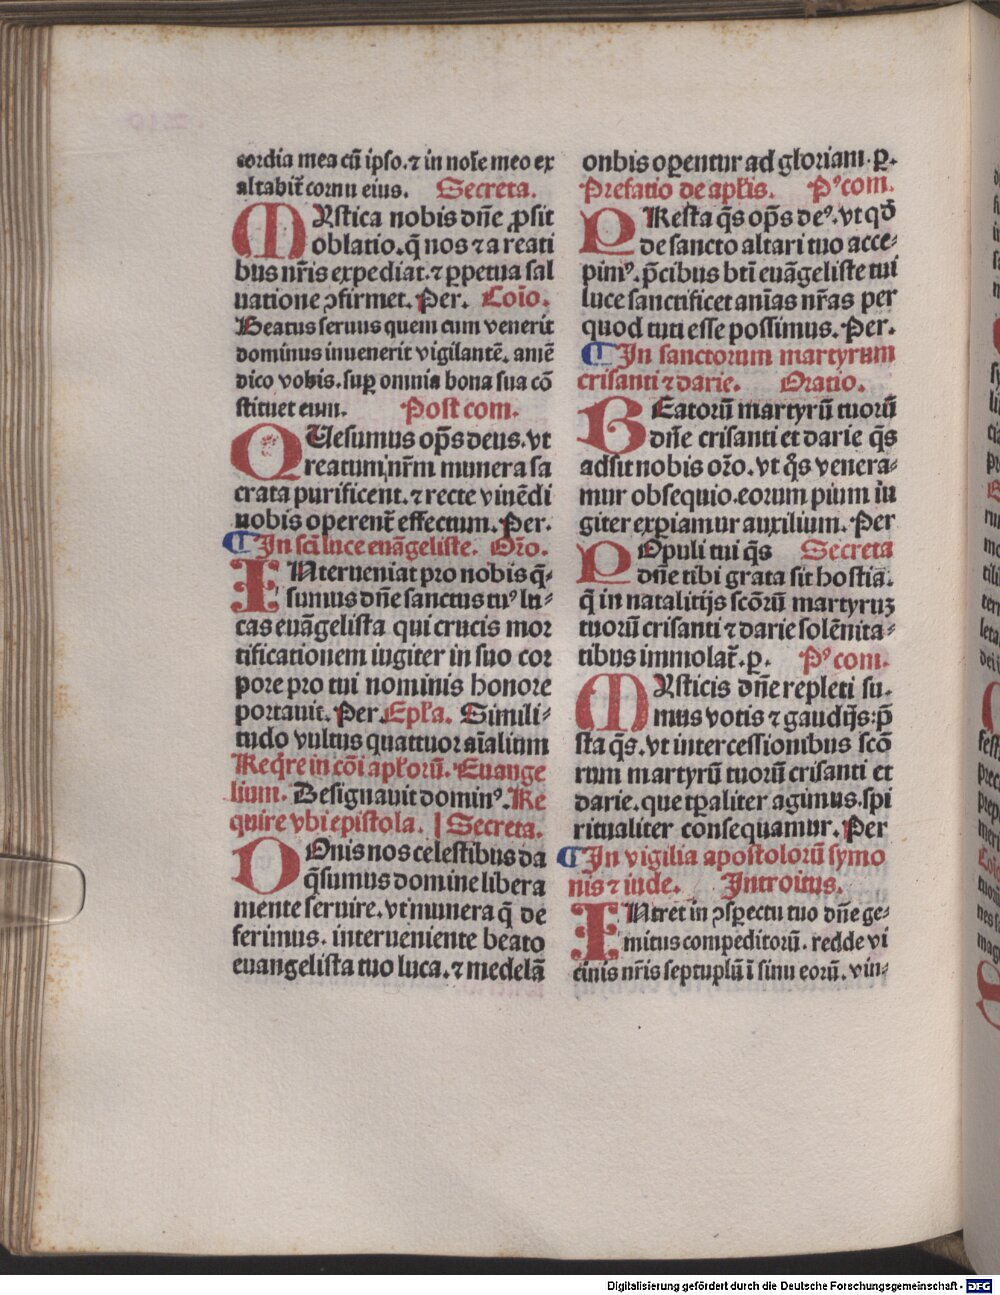 cordia mea cū ipso. ⁊ in noīe meo ex
altabit̄ cornu eius. Secreta.
MYstica nobis dn̄e ꝓsit
oblatio. q̄ nos ⁊ a reati
bus nr̄is expediat. ⁊ ꝑpetua sal
uatione ↄfirmet. Per. Coīo.
Beatus seruus quem cum venerit
dominus inuenerit vigilantē. amē
dico vobis. suꝑ omnia bona sua cō
stituet eum. Post com.
QUesumus op̄s deus. vt
reatum nr̄m munera sa
crata purificent. ⁊ recte viuēdi
nobis operent̄ effectum. Per.
¶ In sc̄i luce euāgeliste. Or̄o.
INterueniat pro nobis q̄-
sumus dn̄e sanctus tuꝰ lu-
cas euāgelista qui crucis mor
tificationem iugiter in suo cor
pore pro tui nominis honore
portauit. Per. Epl̄a. Simili-
tudo vultus quattuor aīalium
Req̄re in cōi apl̄orū. Euange
lium. Designauit dominꝰ. Re
quire vbi epistola. | Secreta.
DOnis nos celestibus da
q̄sumus domine libera
mente seruire. vt munera q̄ de
ferimus. interueniente beato
euangelista tuo luca. ⁊ medelā
onbis oꝑentur ad gloriam. ꝑ.
Prefatio de apl̄is. Pꝰ com.
PResta q̄s op̄s deꝰ. vt qd̄
de sancto altari tuo acce-
pimꝰ. p̄cibus bt̄i euāgeliste tui
luce sanctificet anīas nr̄as per
quod tuti esse possimus. Per.
¶ In sanctorum martyrum
crisanti ⁊ darie. Oratio.
BEatorū martyrū tuorū
dn̄e crisanti et darie q̄s
adsit nobis or̄o. vt q̄s venera-
mur obsequio. eorum pium iu
giter exꝑiamur auxilium. Per
POpuli tui q̄s Secreta
dn̄e tibi grata sit hostia.
q̄ in natalitijs scōrū martyruꝫ
tuorū crisanti ⁊ darie solēnita-
tibus immolat̄. ꝑ. Pꝰ com.
MYsticis dn̄e repleti su-
mus votis ⁊ gaudijs: p̄
sta q̄s. vt intercessionibus scō
rum martyrū tuorū crisanti et
darie. que tꝑaliter agimus. spi
ritualiter consequamur. Per
¶ In vigilia apostolorū symo
nis ⁊ iude. Introitus.
INtret in ↄspectu tuo dn̄e ge-
mitus compeditorū. redde vi
cinis nr̄is septuplū ī sinu eorū. vin-
Digitalisierung gefördert durch die Deutsche Forschungsgemeinschaft - DFG